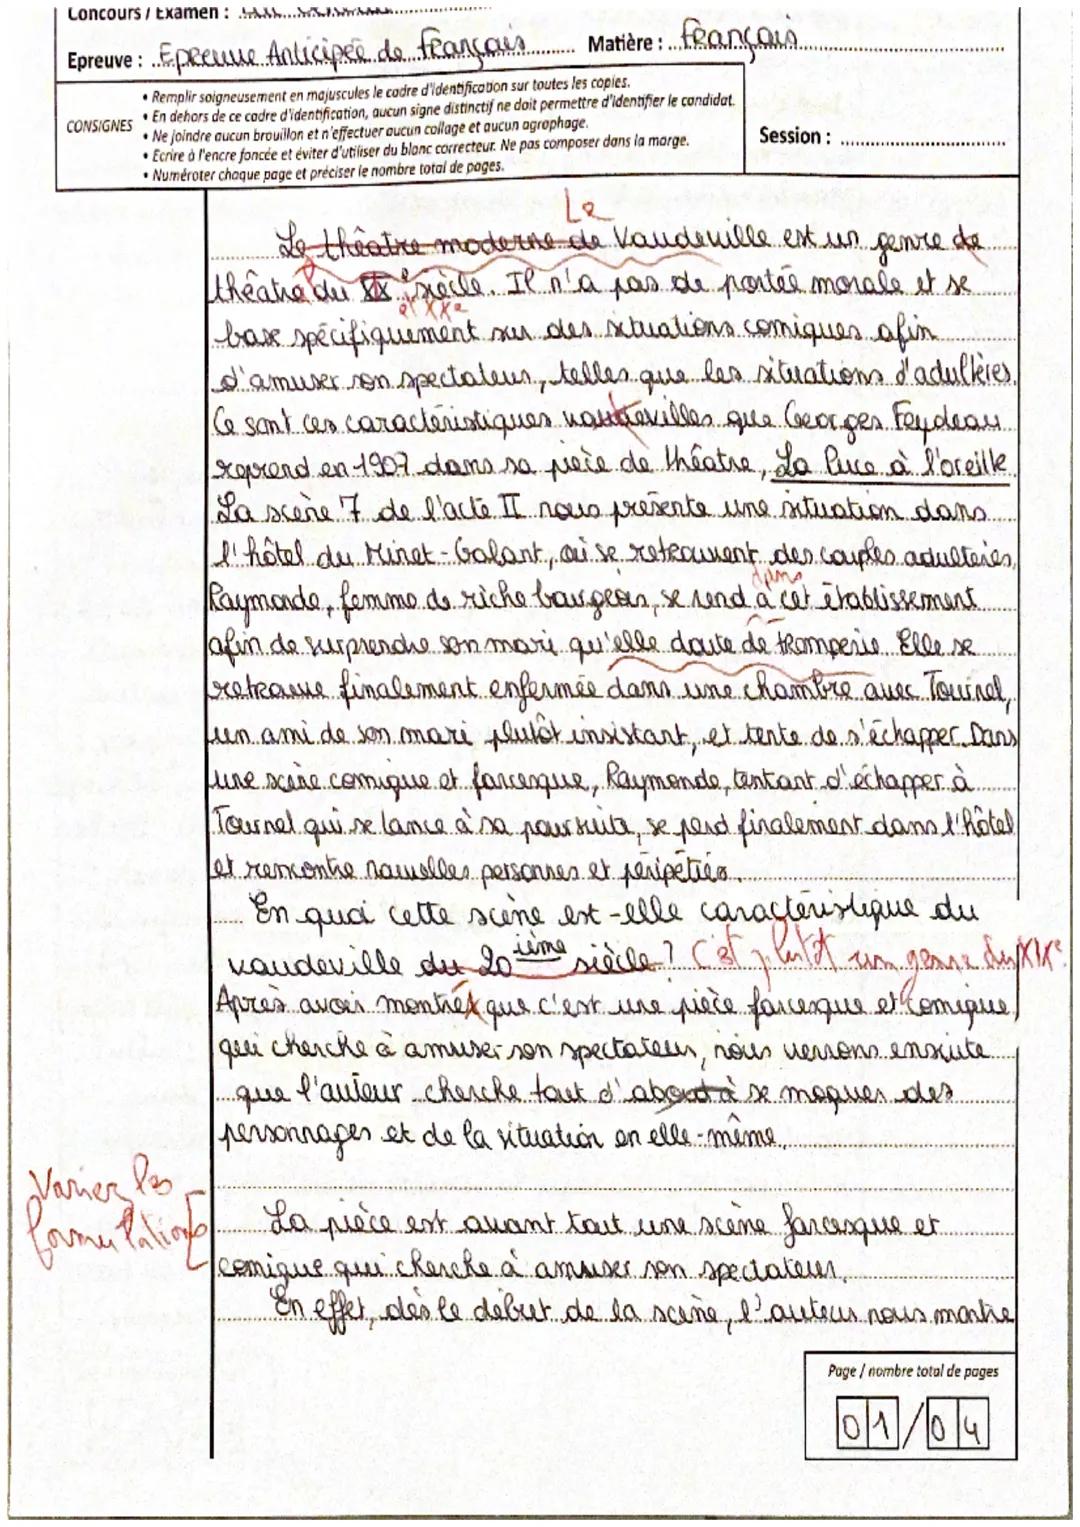 Concours / Examen :
Epreuve : Epreuve Anticipée de Français Matière : Français
CONSIGNES
• Remplir soigneusement en majuscules le cadre d'identification sur toutes les copies.
• En dehors de ce cadre d'identification, aucun signe distinctif ne doit permettre d'identifier le candidat.
• Ne joindre aucun brouillon et n'effectuer aucun collage et aucun agraphage.
• Ecrire à l'encre foncée et éviter d'utiliser du blanc correcteur. Ne pas composer dans la marge.
• Numéroter chaque page et préciser le nombre total de pages.
Session :
Le
Le théâtre moderne de Vaudeville est un genre de
théâtre du XX siècle. Il n'a pas de portée morale et se
et XXe
base spécifiquement sur des situations comiques afin
d'amuser son spectateur, telles que les situations d'adultères.
Ce sont ces caractéristiques vaudevilles que Georges Feydeau
reprend en 1907 dans sa pièce de théâtre, La Puce à l'oreille.
La scène 7 de l'acte II nous présente une situation dans
l'hôtel du Minet-Galant, où se retrouvent des couples adultères.
dans
Raymonde, femme de riche bourgeois, se rend à cet établissement
afin de surprendre son mari qu'elle doute de tromperie. Elle se
retrouve finalement enfermée dans une chambre avec Tournel,
un ami de son mari plutôt insistant, et tente de s'échapper. Dans
une scène comique et farcesque, Raymonde, tentant d'échapper à
Tournel qui se lance à sa poursuite, se perd finalement dans l'hôtel
et rencontre nouvelles personnes et péripéties.
En quoi cette scène est-elle caractéristique du
vaudeville du 20ième siècle ? C'est plutôt un genre du XIXe.
Après avoir montrer que c'est une pièce farcesque et comique,
qui cherche à amuser son spectateur, nous verrons ensuite
que l'auteur cherche tout d'abord à se moquer des
personnages et de la situation en elle-même.
Varier les
formulations
La pièce est avant tout une scène farcesque et
comique qui cherche à amuser son spectateur.
En effet, dès le début de la scène, l'auteur nous montre
Page / nombre total de pages
01/04